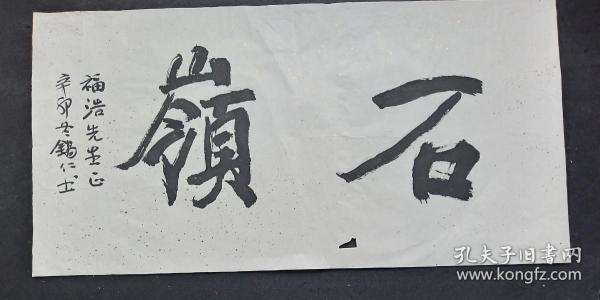 石嶺
福浩先生正
辛卯冬錫仁书
孔夫子旧书网
www.kongfz.com